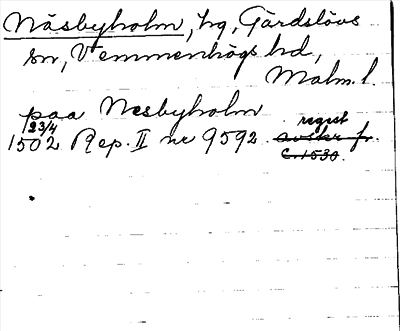 Näsbyholm, hg, Gärdslövs
sn, Vemmenhögs hd,
Malm. l.
paa Nesbyholm
1502 23/4 Rep. II nr 9592 regest avskr. fr.
c. 1530.